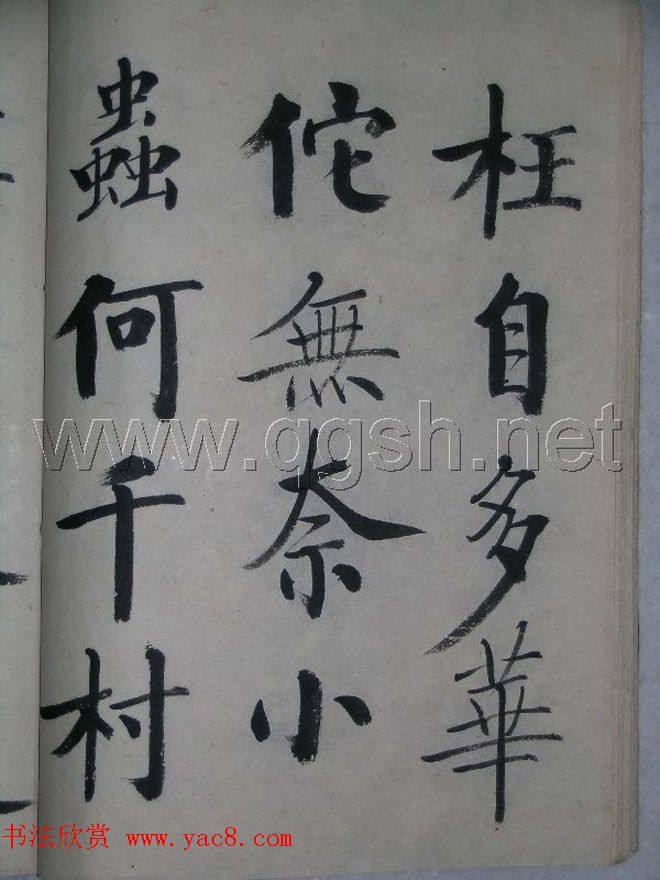 枉自多華
佗無奈小
蟲何千村
www.qgsh.net
书法欣赏 www.yac8.com